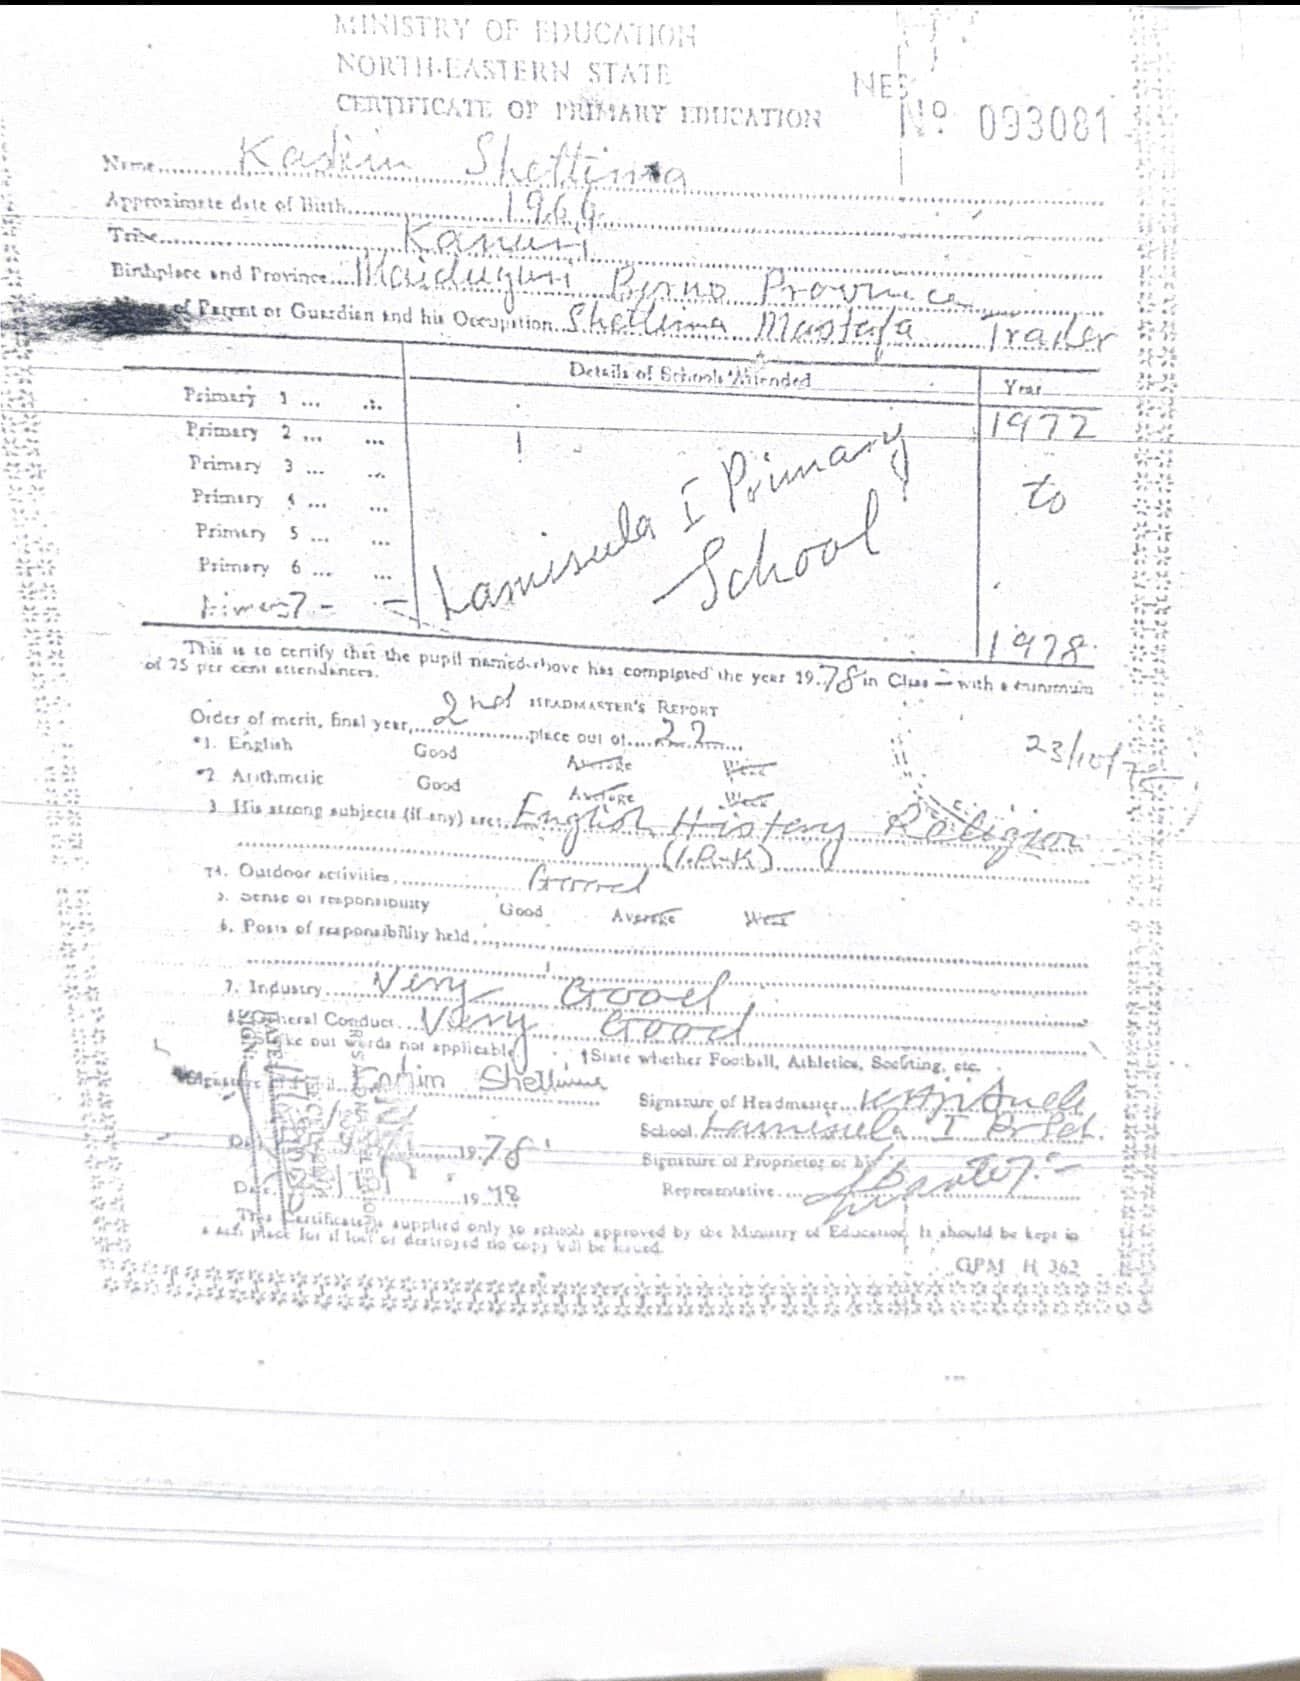 MINISTRY OF EDUCATION
NORTH-EASTERN STATE
CERTIFICATE OF PRIMARY EDUCATION
NES
No 093081
Name Kashim Shettima
Approximate date of Birth 1966
Tribe Kanuri
Birthplace and Province Maiduguri Borno Province
Name of Parent or Guardian and his Occupation Shettima Mustafa Trader
Details of Schools Attended Year
Primary 1 ... ...
Primary 2 ... ... 1972
Primary 3 ... ...
Primary 4 ... ... to
Primary 5 ... ...
Primary 6 ... ...
Primary 7 - -
Lamisula I Primary
School
1978
This is to certify that the pupil named above has completed the year 1978 in Class — with a minimum
of 75 per cent attendances.
HEADMASTER'S REPORT
Order of merit, final year, 2nd place out of 22
*1. English Good Average Weak
*2 Arithmetic Good Average Weak
23/10/
3. His strong subjects (if any) are: English History Religion
(I.R.K)
†4. Outdoor activities Good
5. Sense of responsibility Good Average Weak
6. Posts of responsibility held
7. Industry Very Good
8. General Conduct Very Good
Strike out words not applicable †State whether Football, Athletics, Scouting, etc.
Signature of Kashim Shettima
Signature of Headmaster
School Lamisula I Pr Sch.
Date 1978
Signature of Proprietor or his
Representative
Date 1978
This Certificate is supplied only to schools approved by the Ministry of Education. It should be kept in
a safe place for if lost or destroyed no copy will be issued.
GPM H 362